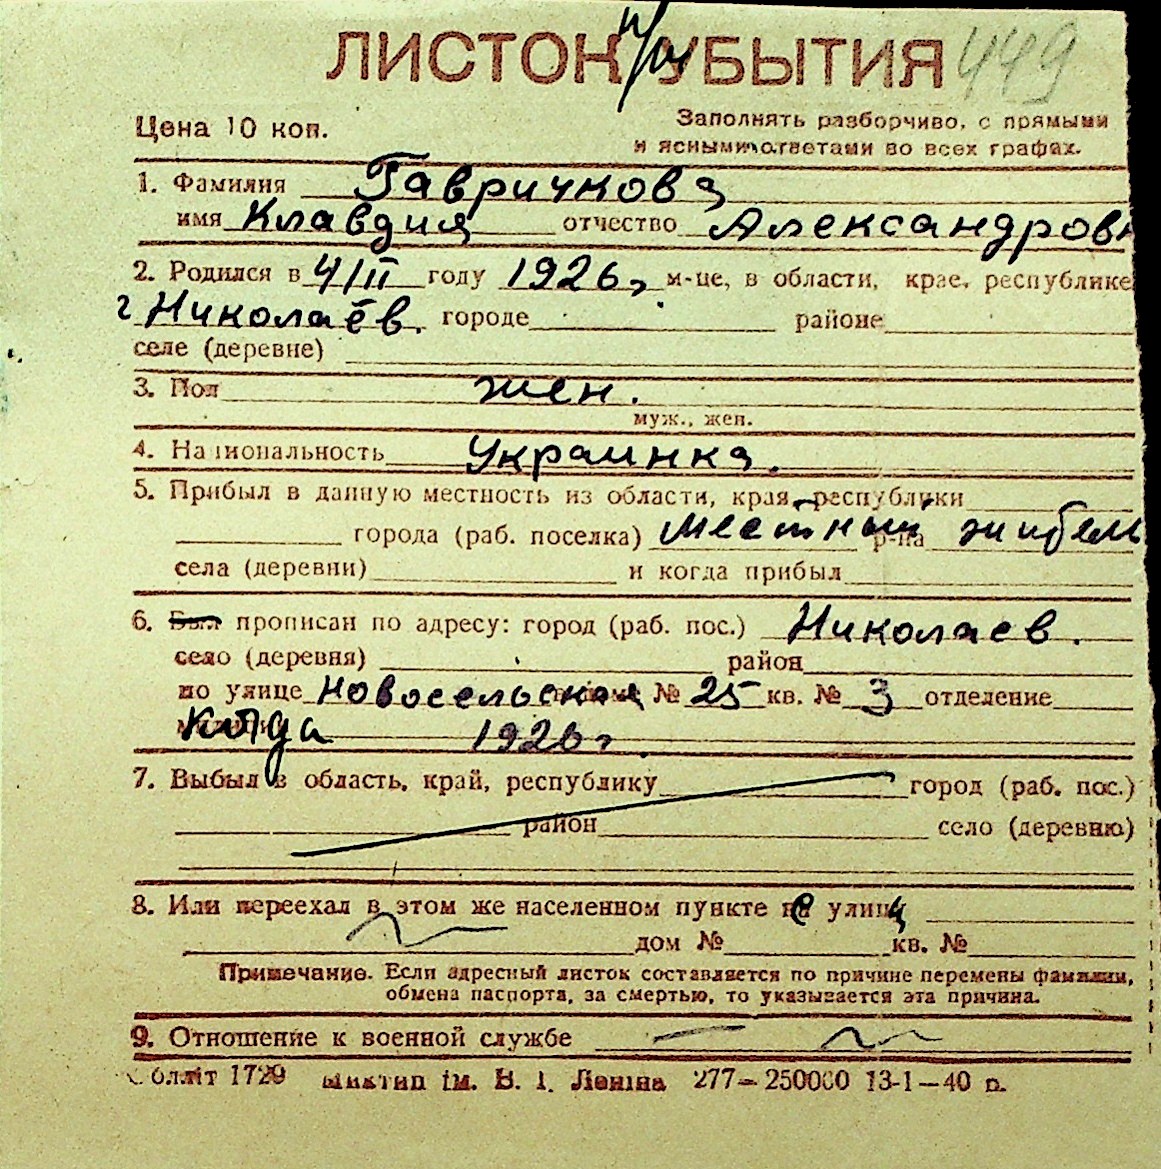 ЛИСТОК УБЫТИЯ 449
Цена 10 коп.
Заполнять разборчиво, с прямыми
и ясными ответами во всех графах.
1. Фамилия Гавричкова
имя Клавдия отчество Александровн
2. Родился в 4/II году 1926 г. м-це, в области, крае, республике
г Николаёв. городе районе
селе (деревне)
3. Пол жен.
муж., жен.
4. Национальность Украинка.
5. Прибыл в данную местность из области, края, республики
города (раб. поселка) местный р-на житель
села (деревни) и когда прибыл
6. Был прописан по адресу: город (раб. пос.) Николаев.
село (деревня) район
по улице Новосельская № 25 кв. № 3 отделение
Когда 1926 г.
7. Выбыл в область, край, республику город (раб. пос.)
район село (деревню)
8. Или переехал в этом же населенном пункте на улицу
дом № кв. №
Примечание. Если адресный листок составляется по причине перемены фамилии,
обмена паспорта, за смертью, то указывается эта причина.
9. Отношение к военной службе
Обліт 1729 ім. В. І. Леніна 277—250000 13-1—40 р.